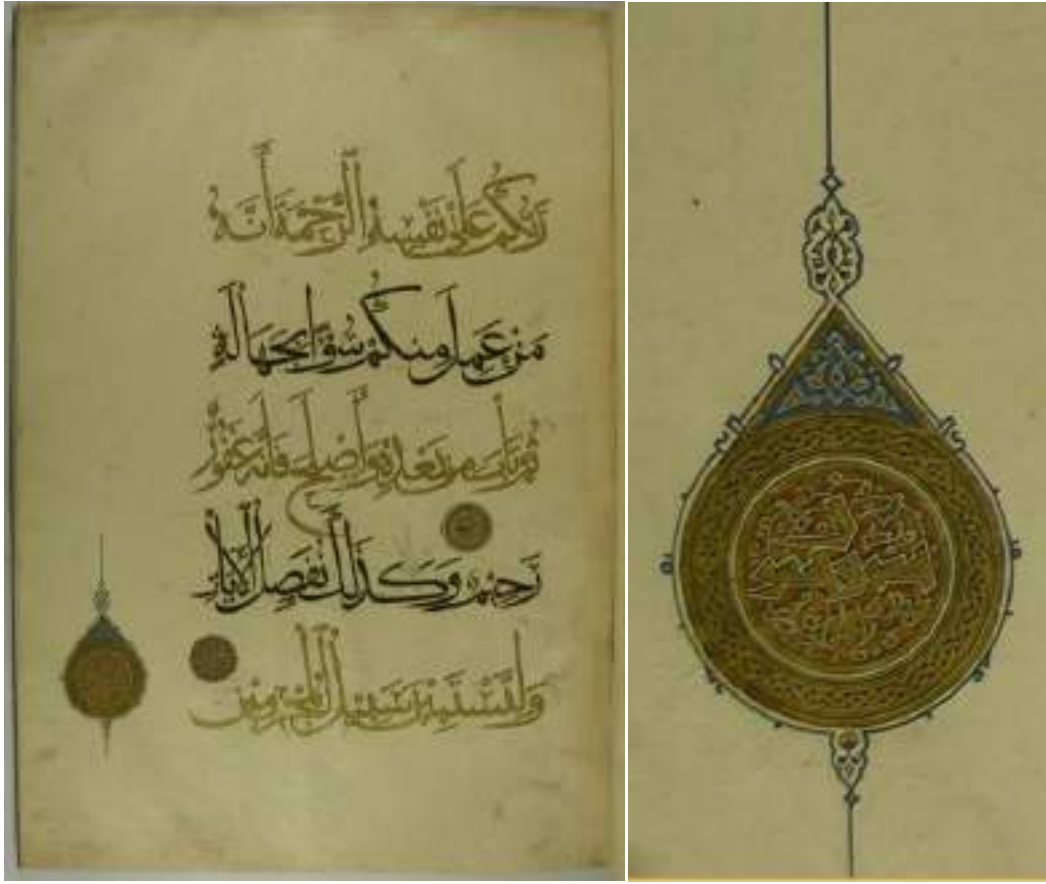 رَبُّكُمْ عَلَىٰ نَفْسِهِ الرَّحْمَةَ أَنَّهُ
مَنْ عَمِلَ مِنْكُمْ سُوءًا بِجَهَالَةٍ
ثُمَّ تَابَ مِنْ بَعْدِهِ وَأَصْلَحَ فَأَنَّهُ غَفُورٌ
رَحِيمٌ وَكَذَٰلِكَ نُفَصِّلُ الْآيَاتِ
وَلِتَسْتَبِينَ سَبِيلُ الْمُجْرِمِينَ